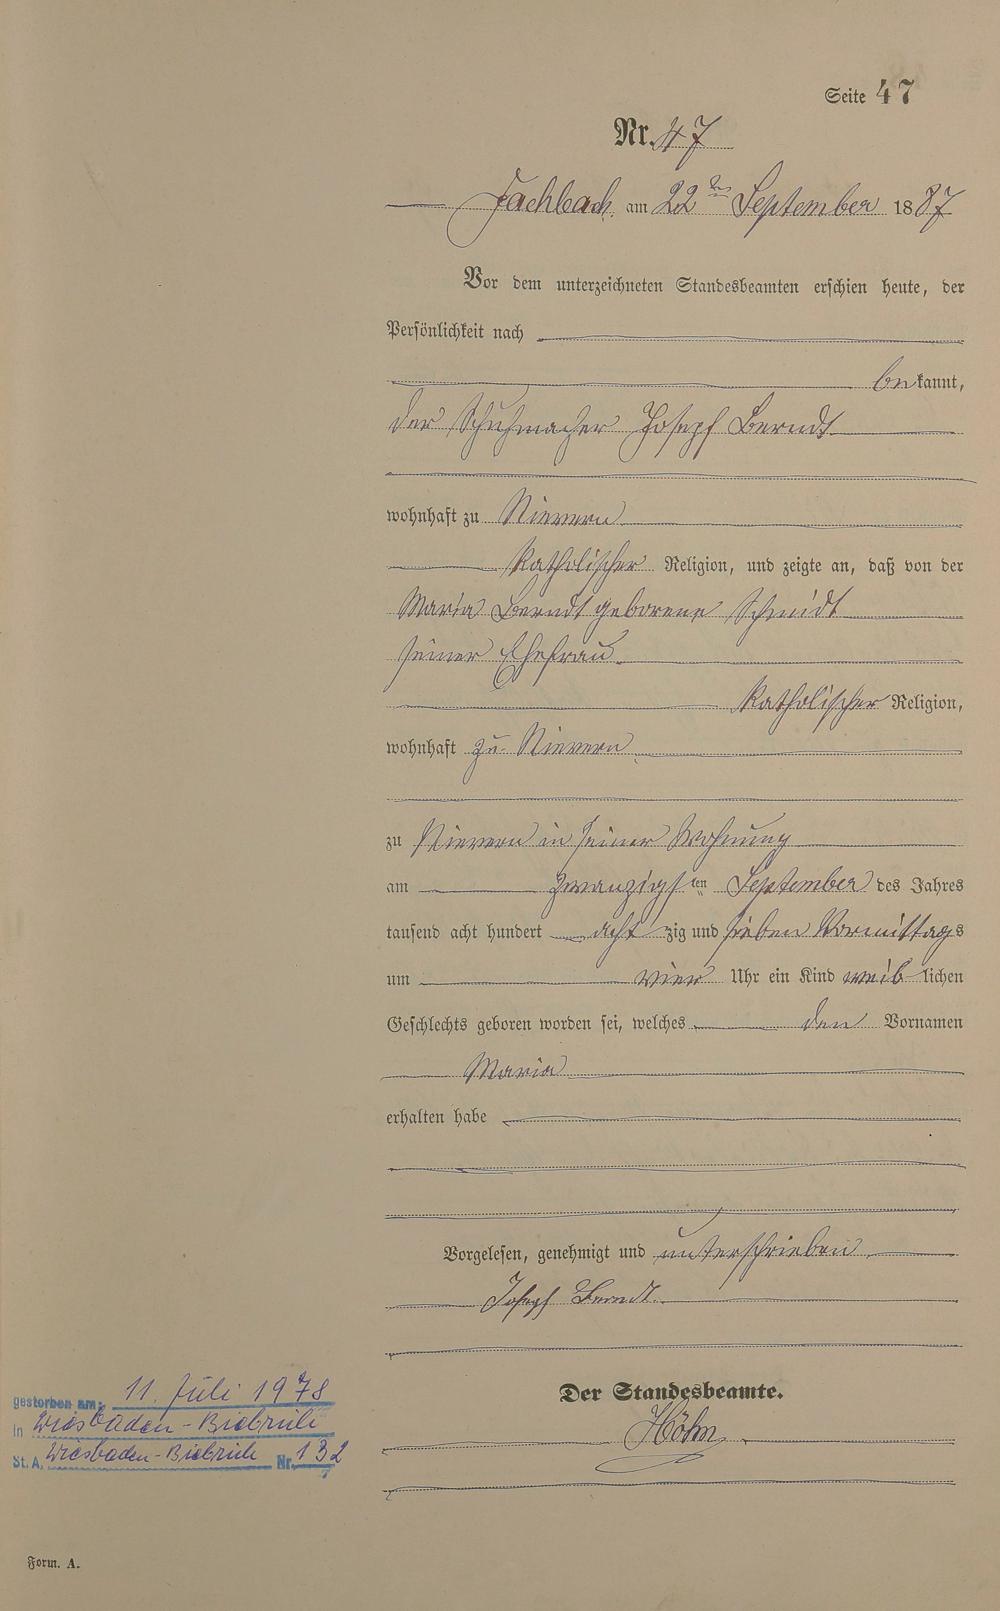 Seite 47
Nr. 47
Fachbach, am 22ten September 1887
Vor dem unterzeichneten Standesbeamten erschien heute, der
Persönlichkeit nach
bekannt,
der Schuhmacher Joseph Berndt
wohnhaft zu Nievern
katholischer Religion, und zeigte an, daß von der
Maria Berndt geborene Schmidt
seiner Ehefrau
katholischer Religion,
wohnhaft zu Nievern
zu Nievern in seiner Wohnung
am zwanzigsten September des Jahres
tausend acht hundert achtzig und sieben Vormittags
um vier Uhr ein Kind weiblichen
Geschlechts geboren worden sei, welches den Vornamen
Maria
erhalten habe
Vorgelesen, genehmigt und unterschrieben
Joseph Berndt.
Der Standesbeamte.
Höhn
gestorben am: 11. Juli 1978
in Wiesbaden-Biebrich
St. A. Wiesbaden-Biebrich Nr. 132
7
Form. A.